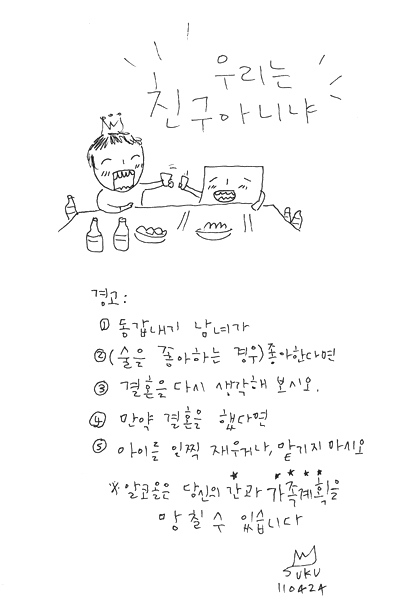 우리는
친구아니냐
경고:
① 동갑내기 남녀가
② (술을 좋아하는 경우) 좋아한다면
③ 결혼을 다시 생각해 보시오.
④ 만약 결혼을 했다면
⑤ 아이를 일찍 재우거나, 맡기지 마시오
※ 알코올은 당신의 간과 가족계획을
망칠 수 있습니다
SUKU
110424